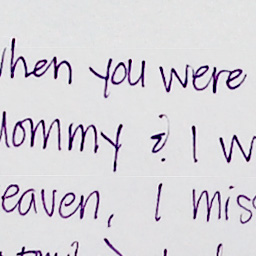 when you were
Mommy & I w
eaven, I mis